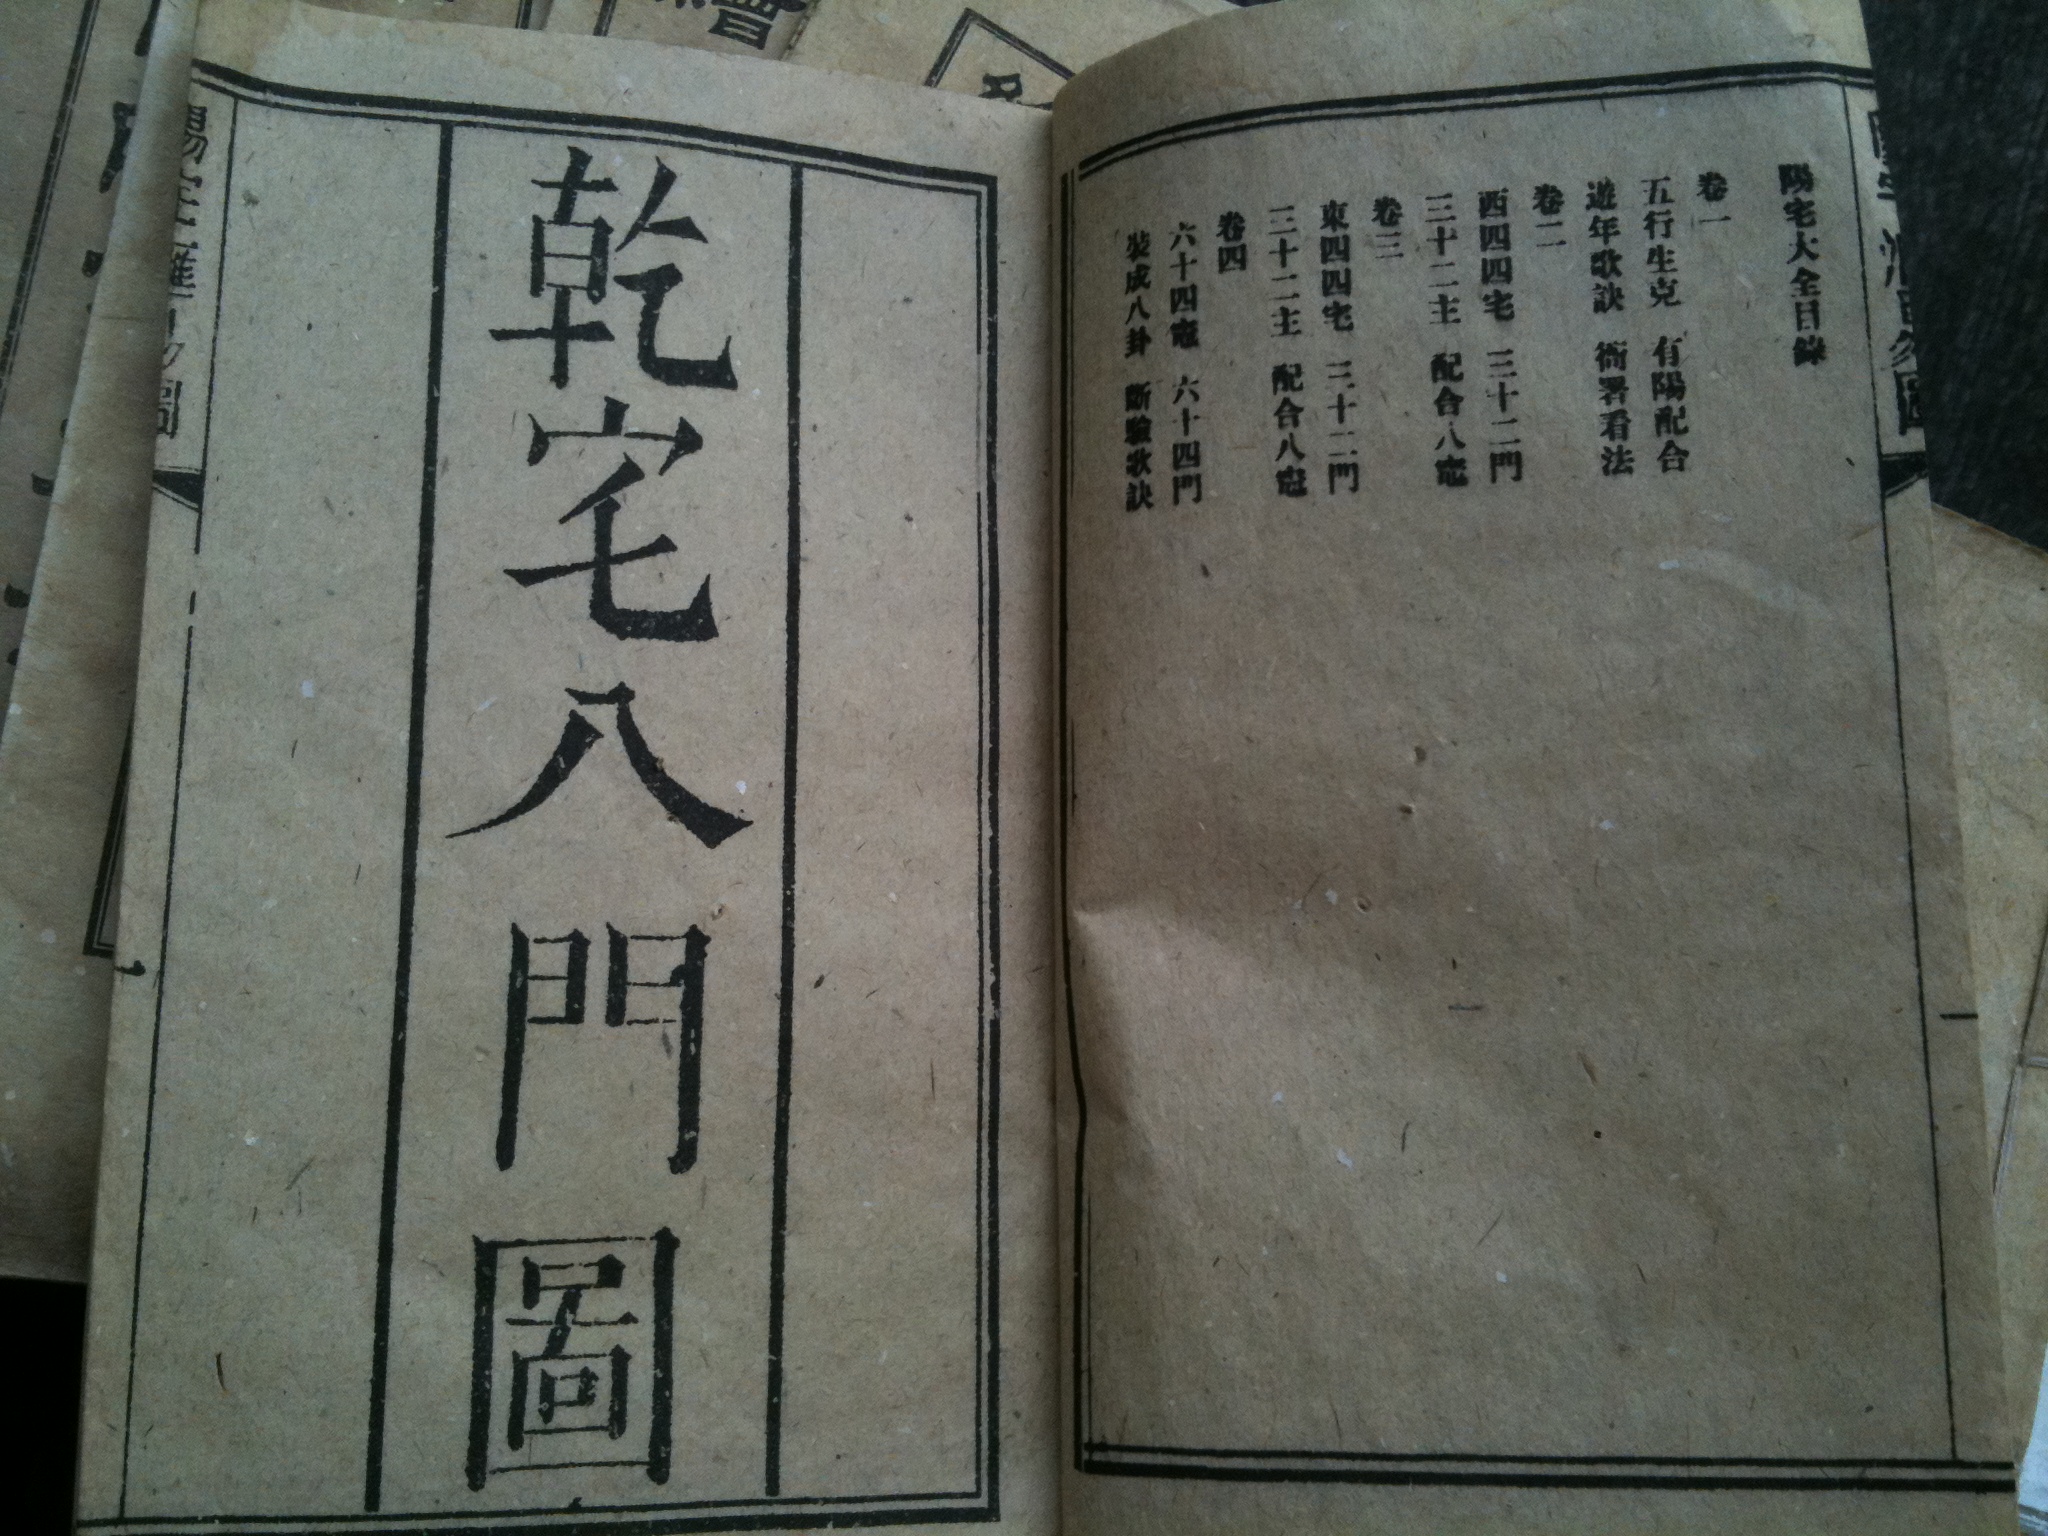 陽宅大全目錄
卷一
五行生克 有陽配合
遊年歌訣 衙署看法
卷二
西四四宅 三十二門
三十二主 配合八竈
卷三
東四四宅 三十二門
三十二主 配合八竈
卷四
六十四竈 六十四門
裝成八卦 斷驗歌訣
乾宅八門圖